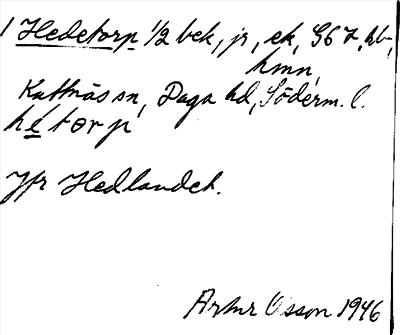 1 Hedetorp 1/2 bek, jr, ek, G6 7, hb,
hmn,
Kattnäs sn, Daga hd, Söderm. l.
hetɵrp
Jfr Hedlandet.
Artur Olsson 1946